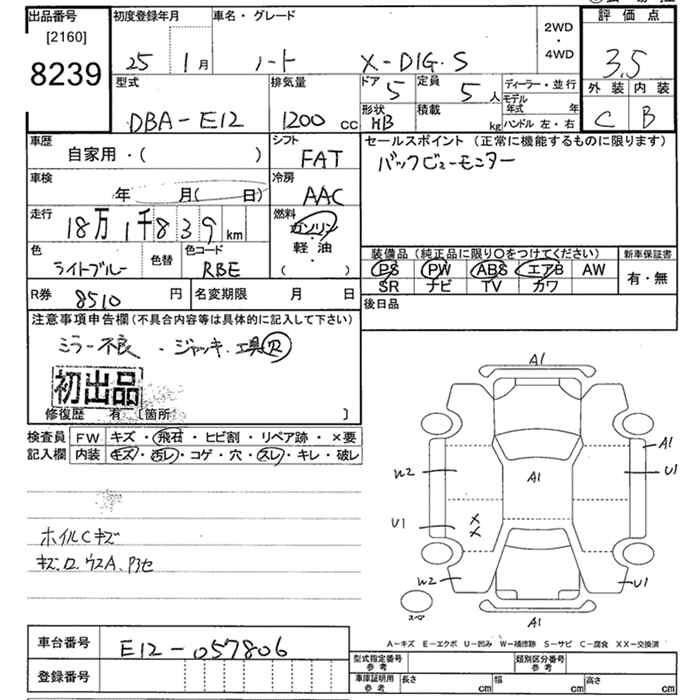 出品番号
[2160]
8239
初度登録年月
25 1月
車名・グレード
ノート X-DIG.S
2WD
・
4WD
評価点
3.5
外装 内装
C B
型式
DBA-E12
排気量
1200 CC
ドア 5
定員 5人
形状 HB
積載 kg
ディーラー・並行
モデル年式 年
ハンドル 左・右
車歴
自家用・( )
シフト
FAT
セールスポイント(正常に機能するものに限ります)
バックビューモニター
車検
年 月( 日)
冷房
AAC
走行
18万1千839km
燃料
ガソリン
・
軽油
( )
色
ライトブルー
色替
色コード
RBE
装備品(純正品に限り〇をつけてください)
新車保証書
PS PW ABS エアB AW
SR ナビ TV カワ
有・無
R券 8510 円
名変期限 月 日
後日品
注意事項申告欄(不具合内容等は具体的に記入して下さい)
ミラー不良 ・ジャッキ、工具欠
初出品
修復歴 有 〔箇所 〕
検査員 FW キズ・飛石・ヒビ割・リペア跡・×要
記入欄 内装 キズ・汚レ・コゲ・穴・スレ・キレ・破レ
ホイルCキズ
A1
A1
W2 A1 U1
U1 X
X
W2 U1
スペア
A1
A-キズ E-エクボ U-凹み W-補修跡 S-サビ C-腐食 XX-交換済
車台番号 E12-057806
登録番号
型式指定番号
参考
類別区分番号
参考
車庫証明用
参考
長さ cm 幅 cm 高さ cm